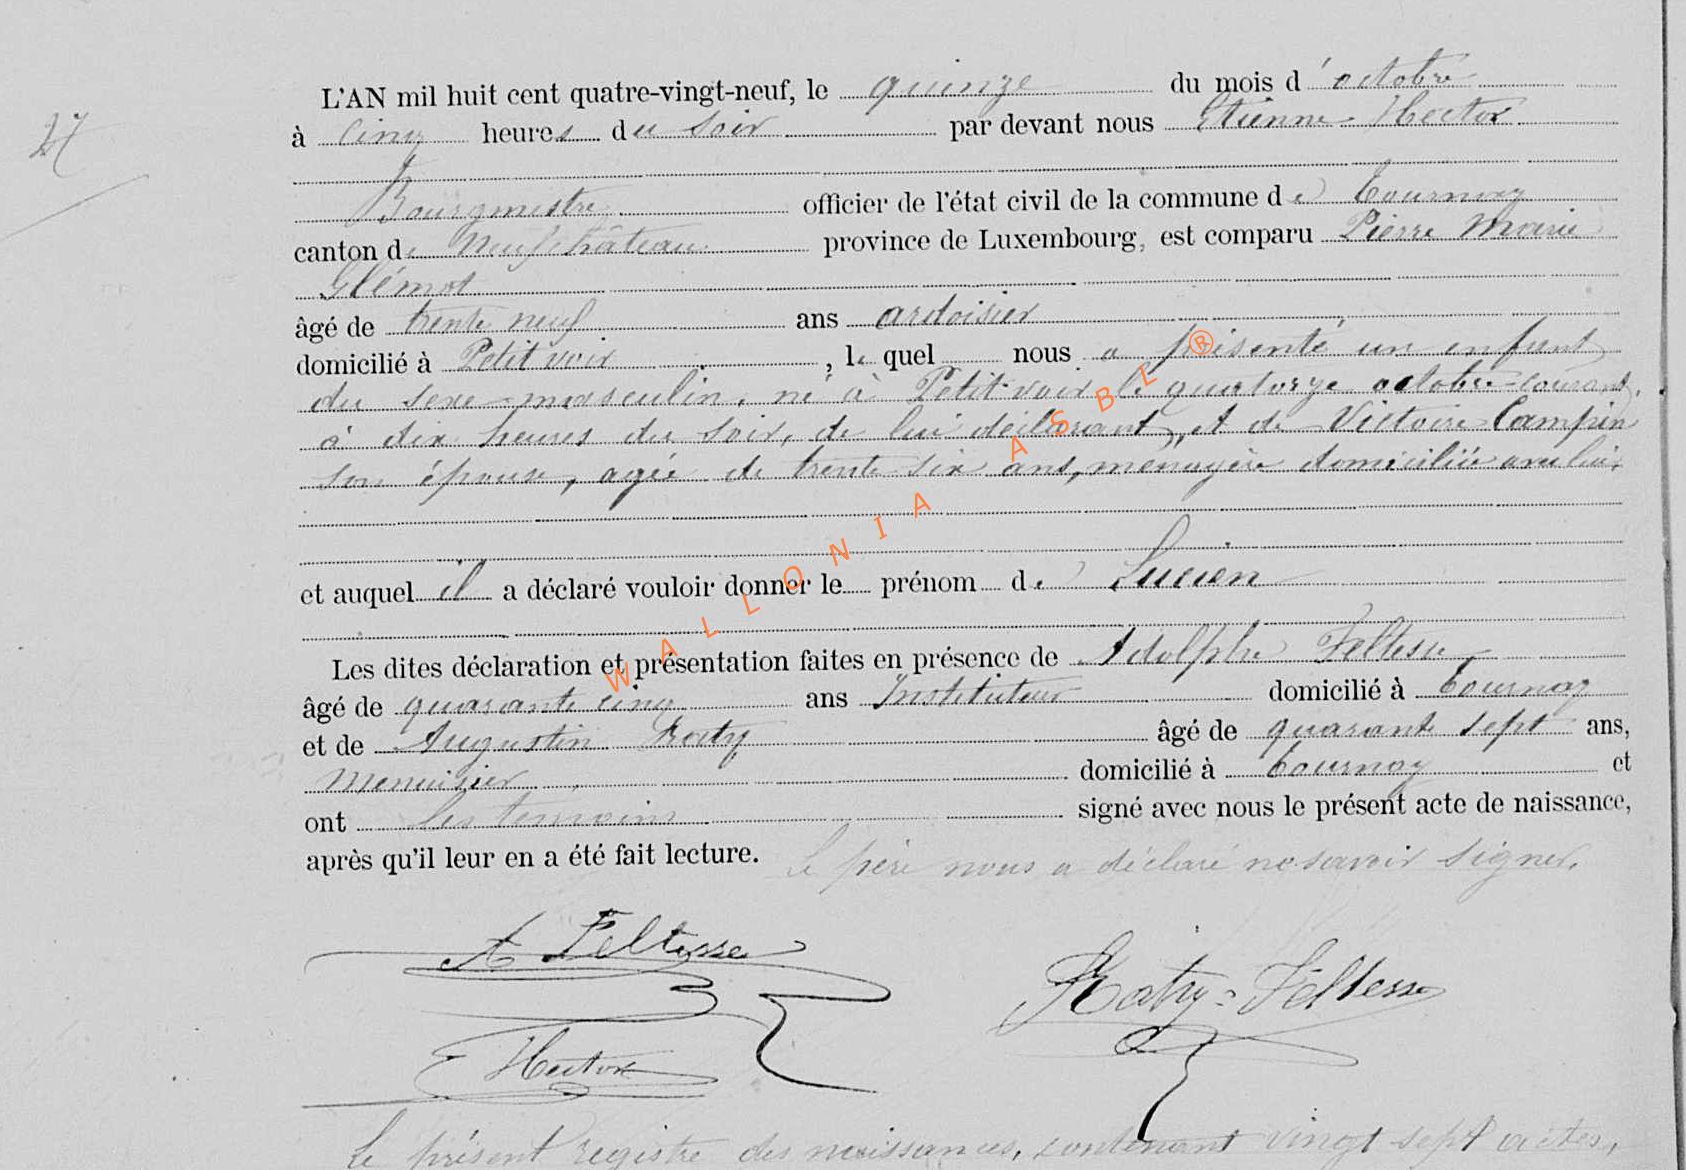 27
L'AN mil huit cent quatre-vingt-neuf, le quinze du mois d'octobre
à cinq heures du soir par devant nous Etienne Hector
Bourgmestre officier de l'état civil de la commune de Tournay
canton de Neufchâteau province de Luxembourg, est comparu Pierre Marie
Glémot
âgé de trente neuf ans ardoisier
domicilié à Petitvoir, lequel nous a présenté un enfant
du sexe masculin, né à Petit-voir le quatorze octobre courant,
à dix heures du soir, de lui déclarant, et de Victoire Campin
son épouse, agée de trente six ans, ménagère domiciliée avec lui,
et auquel il a déclaré vouloir donner le prénom de Lucien
Les dites déclaration et présentation faites en présence de Adolphe Feltesse,
âgé de quarante cinq ans Instituteur domicilié à Tournay
et de Augustin Roty âgé de quarante sept ans,
Menuisier domicilié à Tournay et
ont les temoins signé avec nous le présent acte de naissance,
après qu'il leur en a été fait lecture. Le père nous a déclaré ne savoir signer.
A Feltesse
Hector
Le présent registre des naissances, contenant vingt sept actes,
WALLONIA ASBL ®